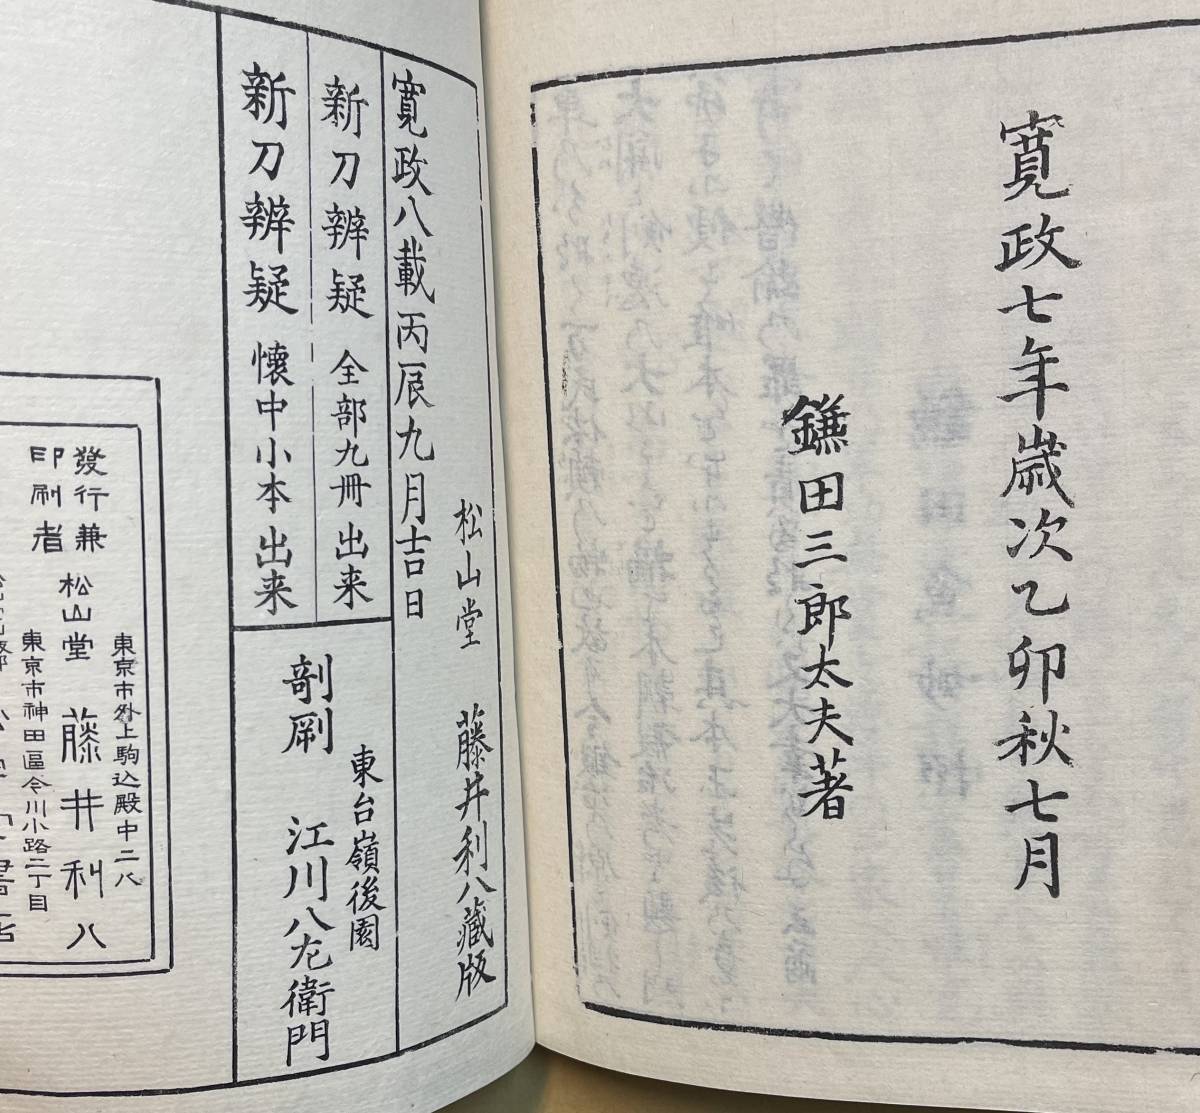 寛政七年歳次乙卯秋七月
鎌田三郎太夫著
寛政八載丙辰九月吉日
松山堂 藤井利八藏版
新刀辨疑 全部九冊出来
新刀辨疑 懐中小本出来
東台嶺後園
剞劂 江川八左衛門
東京市外上駒込殿中二八
發行兼
印刷者
松山堂 藤井利八
東京市神田區今川小路二丁目